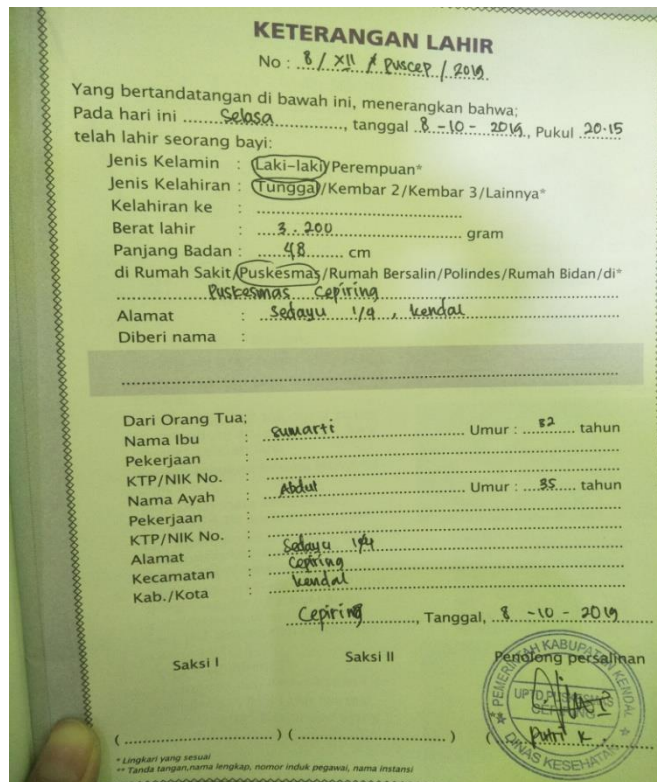 KETERANGAN LAHIR
No : 8 / XII / puscep / 2019
Yang bertandatangan di bawah ini, menerangkan bahwa;
Pada hari ini Selasa, tanggal 8 - 10 - 2019, Pukul 20.15
telah lahir seorang bayi:
Jenis Kelamin : Laki-laki/Perempuan*
Jenis Kelahiran : Tunggal/Kembar 2/Kembar 3/Lainnya*
Kelahiran ke :
Berat lahir : 3.200 gram
Panjang Badan : 48 cm
di Rumah Sakit/Puskesmas/Rumah Bersalin/Polindes/Rumah Bidan/di*
Puskesmas Cepiring
Alamat : Sedayu 1/4, kendal
Diberi nama :
Dari Orang Tua;
Nama Ibu : Sumarti Umur : 32 tahun
Pekerjaan :
KTP/NIK No. :
Nama Ayah : Abdul Umur : 35 tahun
Pekerjaan :
KTP/NIK No. :
Alamat : Sedayu 1/4
Kecamatan : Cepiring
Kab./Kota : kendal
Cepiring, Tanggal, 8 - 10 - 2019
Saksi I Saksi II Penolong persalinan
PEMERINTAH KABUPATEN KENDAL
UPTD PUSKESMAS
CEPIRING
DINAS KESEHATAN
( ) ( ) ( Putri K.
* Lingkari yang sesuai
** Tanda tangan, nama lengkap, nomor induk pegawai, nama instansi